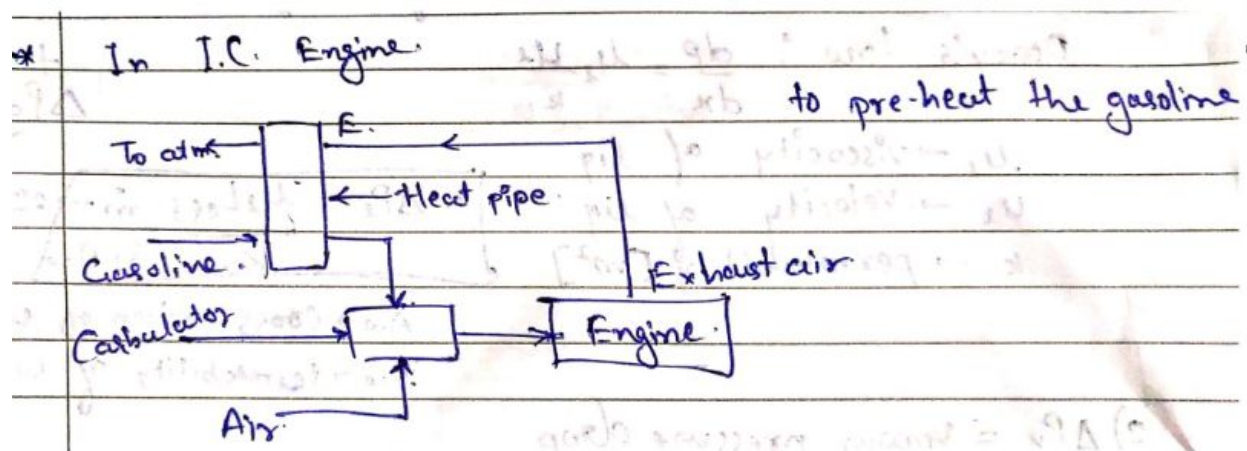 * In I.C. Engine.
to pre-heat the gasoline
E.
To atm
Heat pipe
Gasoline.
Exhaust air
Carbulator
Engine.
Air.